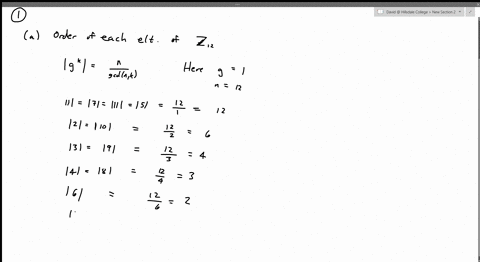 David @ Hillsdale College - New Section 2
①
(a) Order of each elt. of ℤ₁₂
|gᵏ| = n/gcd(n,k) Here g = 1
n = 12
|1| = |7| = |11| = |5| = 12/1 = 12
|2| = |10| = 12/2 = 6
|3| = |9| = 12/3 = 4
|4| = |8| = 12/4 = 3
|6| = 12/6 = 2
|